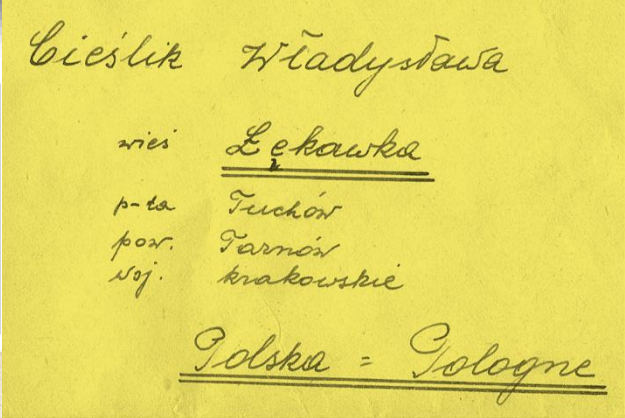 Cieślik Władysława
wieś Łękawka
p-ta Tuchów
pow. Tarnów
woj. krakowskie
Polska = Pologne